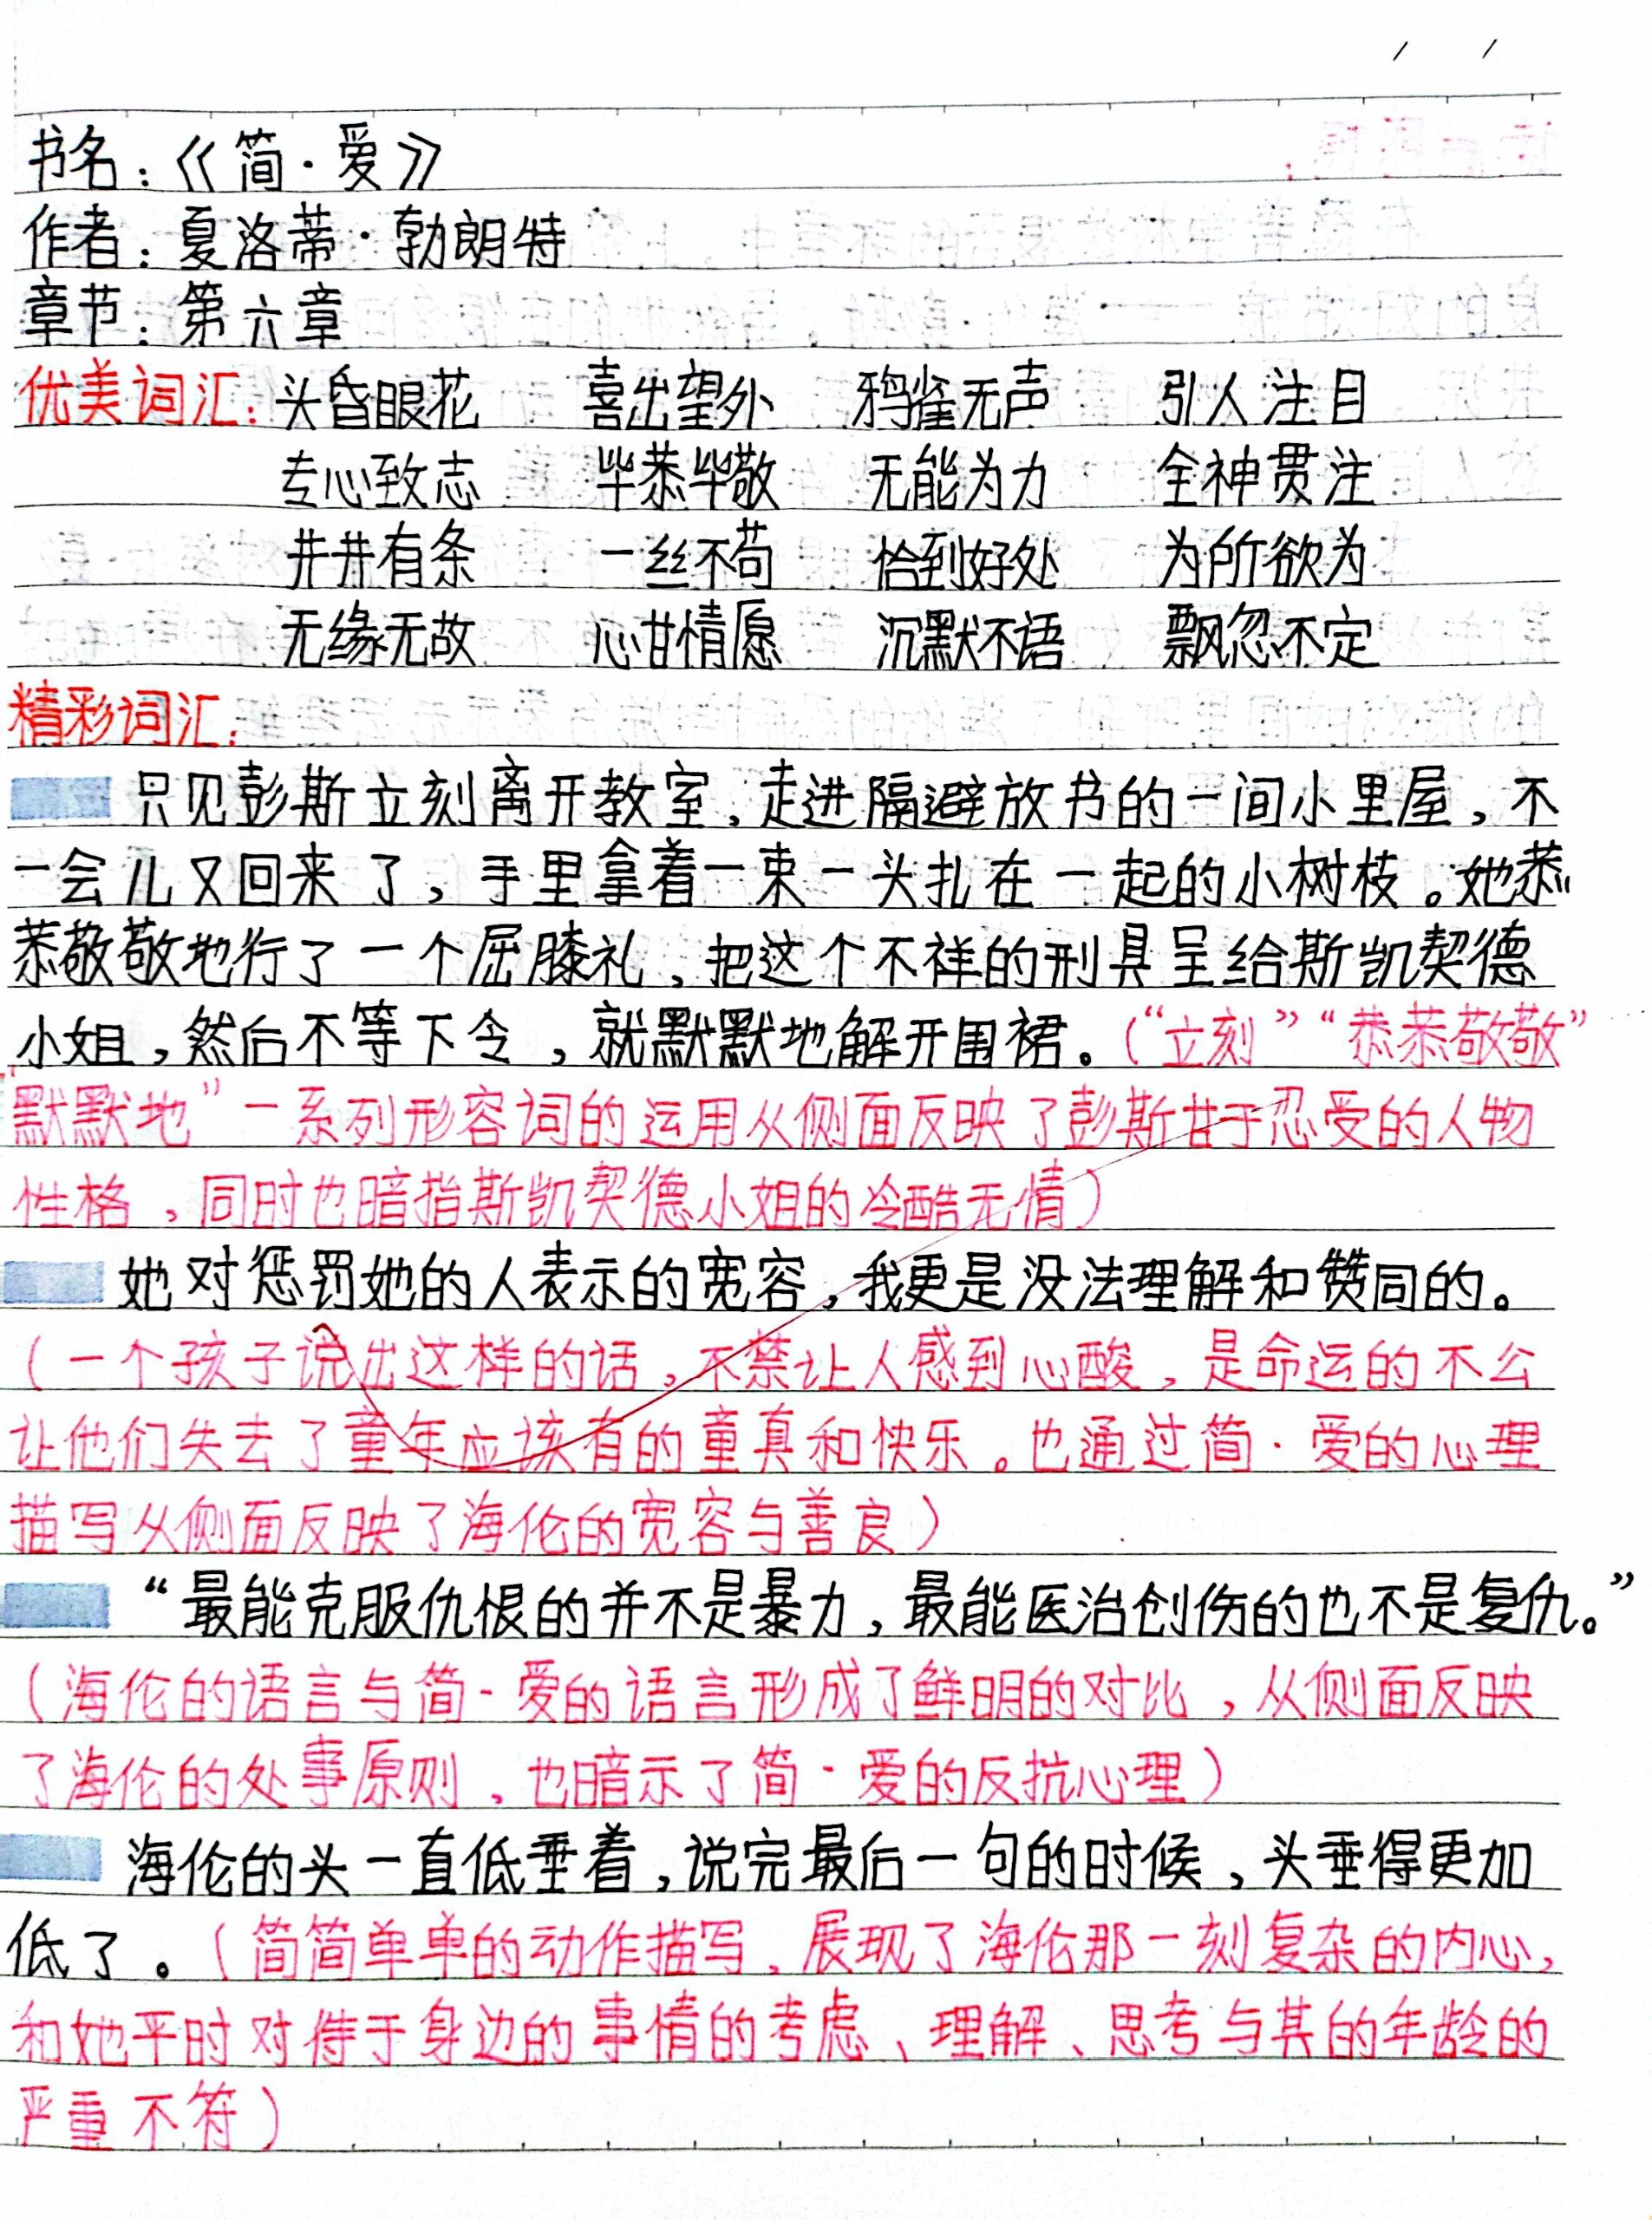 书名：《简·爱》
作者：夏洛蒂·勃朗特
章节：第六章
优美词汇：头昏眼花 喜出望外 鸦雀无声 引人注目
专心致志 毕恭毕敬 无能为力 全神贯注
井井有条 一丝不苟 恰到好处 为所欲为
无缘无故 心甘情愿 沉默不语 飘忽不定
精彩词汇：
只见彭斯立刻离开教室，走进隔避放书的一间小里屋，不
一会儿又回来了，手里拿着一束一头扎在一起的小树枝。她恭
恭敬敬地行了一个屈膝礼，把这个不祥的刑具呈给斯凯契德
小姐，然后不等下令，就默默地解开围裙。（“立刻”“恭恭敬敬”
默默地”一系列形容词的运用从侧面反映了彭斯甘于忍受的人物
性格，同时也暗指斯凯契德小姐的冷酷无情）
她对惩罚她的人表示的宽容，我更是没法理解和赞同的。
（一个孩子说出这样的话，不禁让人感到心酸，是命运的不公
让他们失去了童年应该有的童真和快乐。也通过简·爱的心理
描写从侧面反映了海伦的宽容与善良）
“最能克服仇恨的并不是暴力，最能医治创伤的也不是复仇。”
（海伦的语言与简·爱的语言形成了鲜明的对比，从侧面反映
了海伦的处事原则，也暗示了简·爱的反抗心理）
海伦的头一直低垂着，说完最后一句的时候，头垂得更加
低了。（简简单单的动作描写，展现了海伦那一刻复杂的内心，
和她平时对待于身边的事情的考虑、理解、思考与其的年龄的
严重不符）